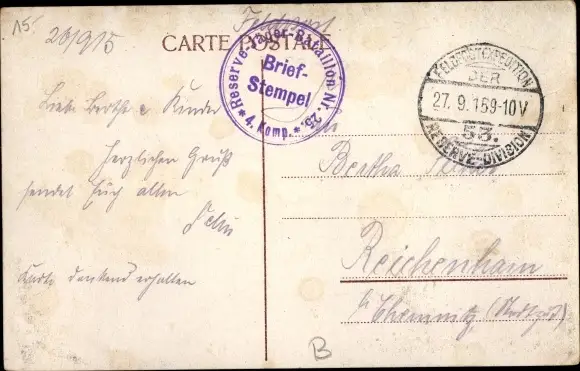 15.
26/9/15
Feldpost
CARTE POSTALE
* Reserve-Jäger-Bataillon Nr. 25. *
Brief-
Stempel
4. Komp.
FELDPOSTEXPEDITION
DER
27. 9. 15 9-10V
53.
RESERVE-DIVISION
Liebe Bertha & Kinder
Herzlichen Gruß
sendet Euch allen
Karte dankend erhalten
Bertha
Reichenhain
Chemnitz
B